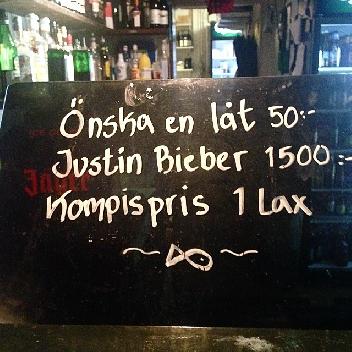 Önska en låt 50:-
Justin Bieber 1500:-
Kompispris 1 Lax
Jäger